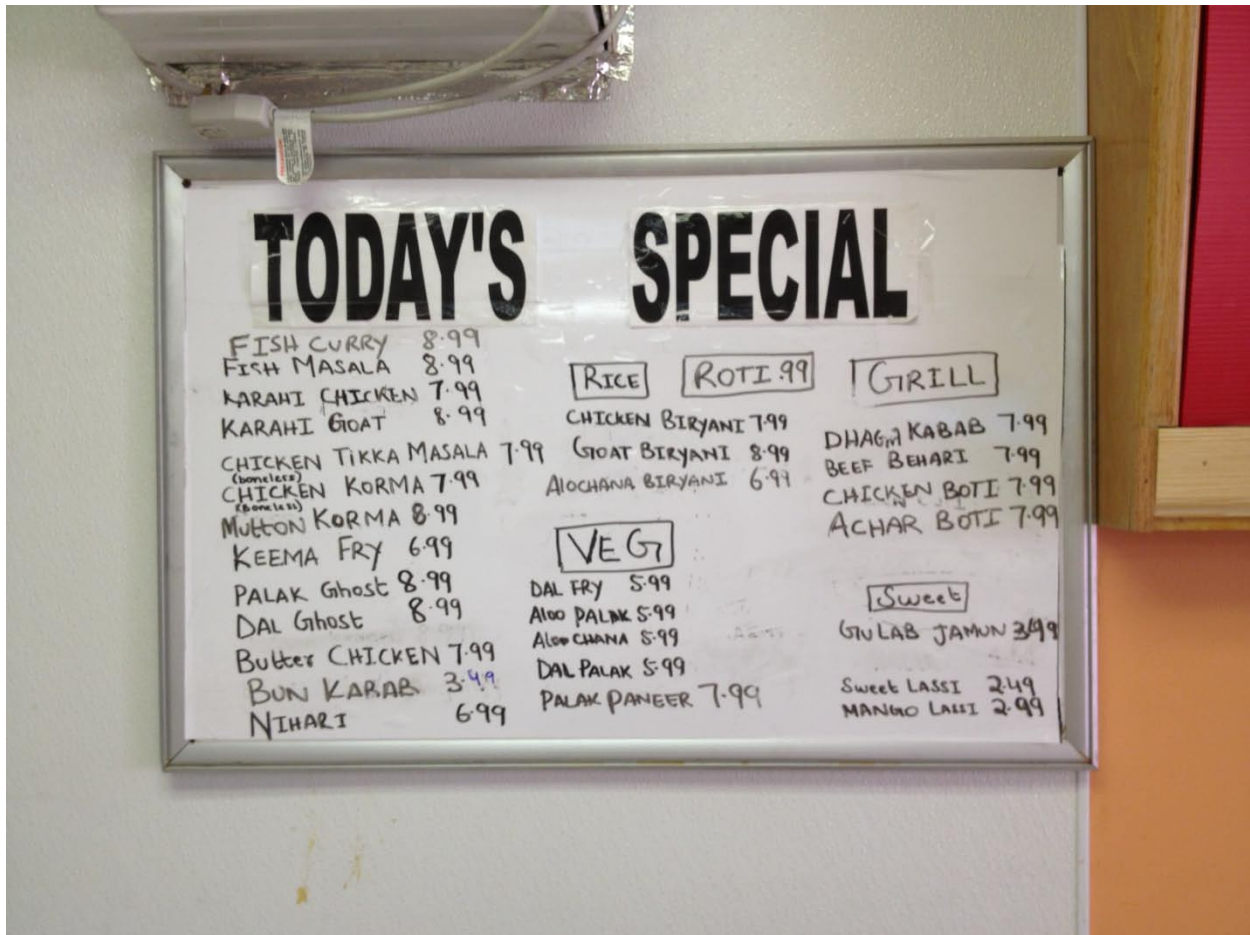 TODAY'S SPECIAL
FISH CURRY 8.99
FISH MASALA 8.99
KARAHI CHICKEN 7.99
KARAHI GOAT 8.99
CHICKEN TIKKA MASALA 7.99
(boneless)
CHICKEN KORMA 7.99
(Boneless)
Mutton KORMA 8.99
KEEMA FRY 6.99
PALAK Ghost 8.99
DAL Ghost 8.99
Butter CHICKEN 7.99
BUN KABAB 3.49
NIHARI 6.99
RICE ROTI .99
CHICKEN BIRYANI 7.99
GOAT BIRYANI 8.99
AloCHANA BIRYANI 6.99
VEG
DAL FRY 5.99
Aloo PALAK 5.99
Aloo CHANA 5.99
DAL PALAK 5.99
PALAK PANEER 7.99
GRILL
KABAB 7.99
BEEF BEHARI 7.99
CHICKEN BOTI 7.99
ACHAR BOTI 7.99
Sweet
GULAB JAMUN
Sweet LASSI 2.49
MANGO LASSI 2.99